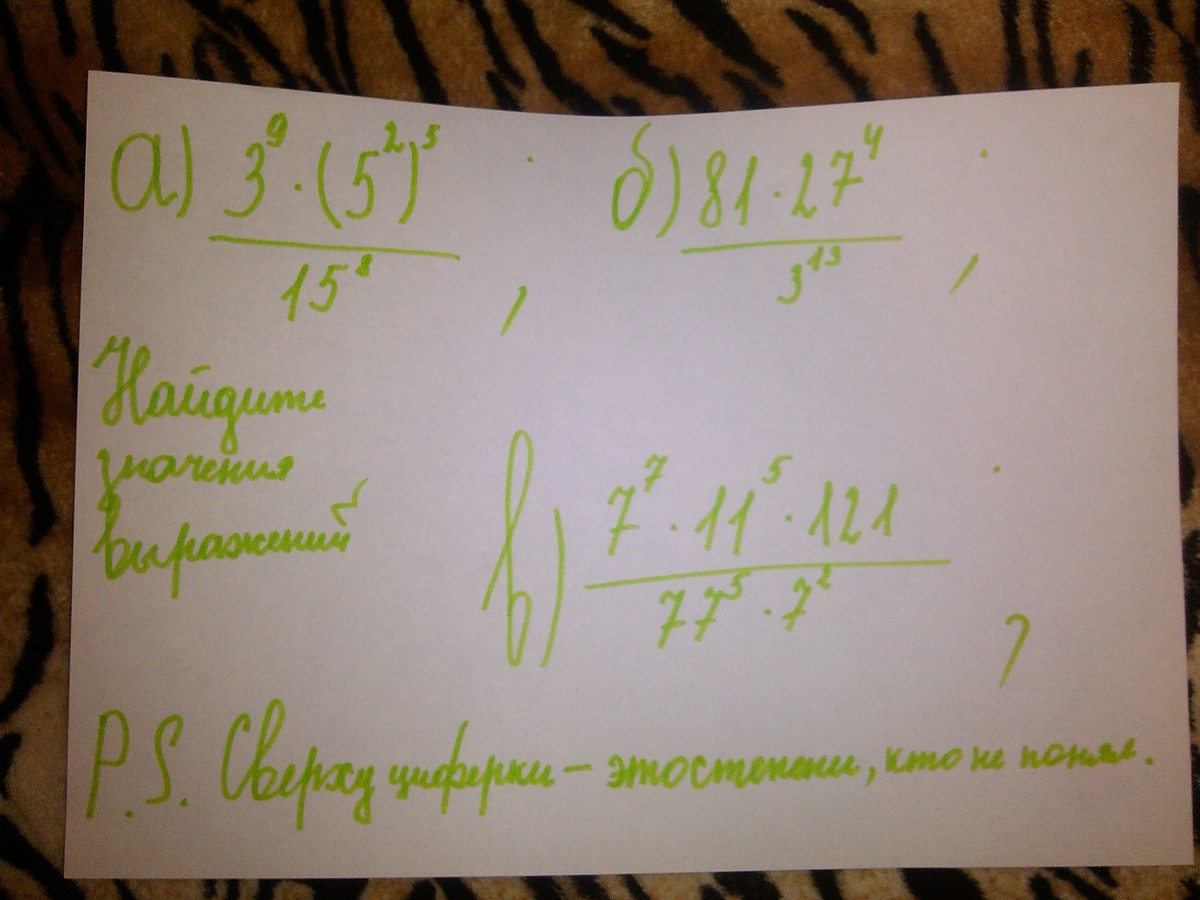 а) 3⁹ · (5²)⁵ / 15⁸ ;
б) 81 · 27⁴ / 3¹³ ;
Найдите
значения
выражений
в) 7⁷ · 11⁵ · 121 / 77⁵ · 7² ;
P.S. Сверху циферки – это степени, кто не понял.